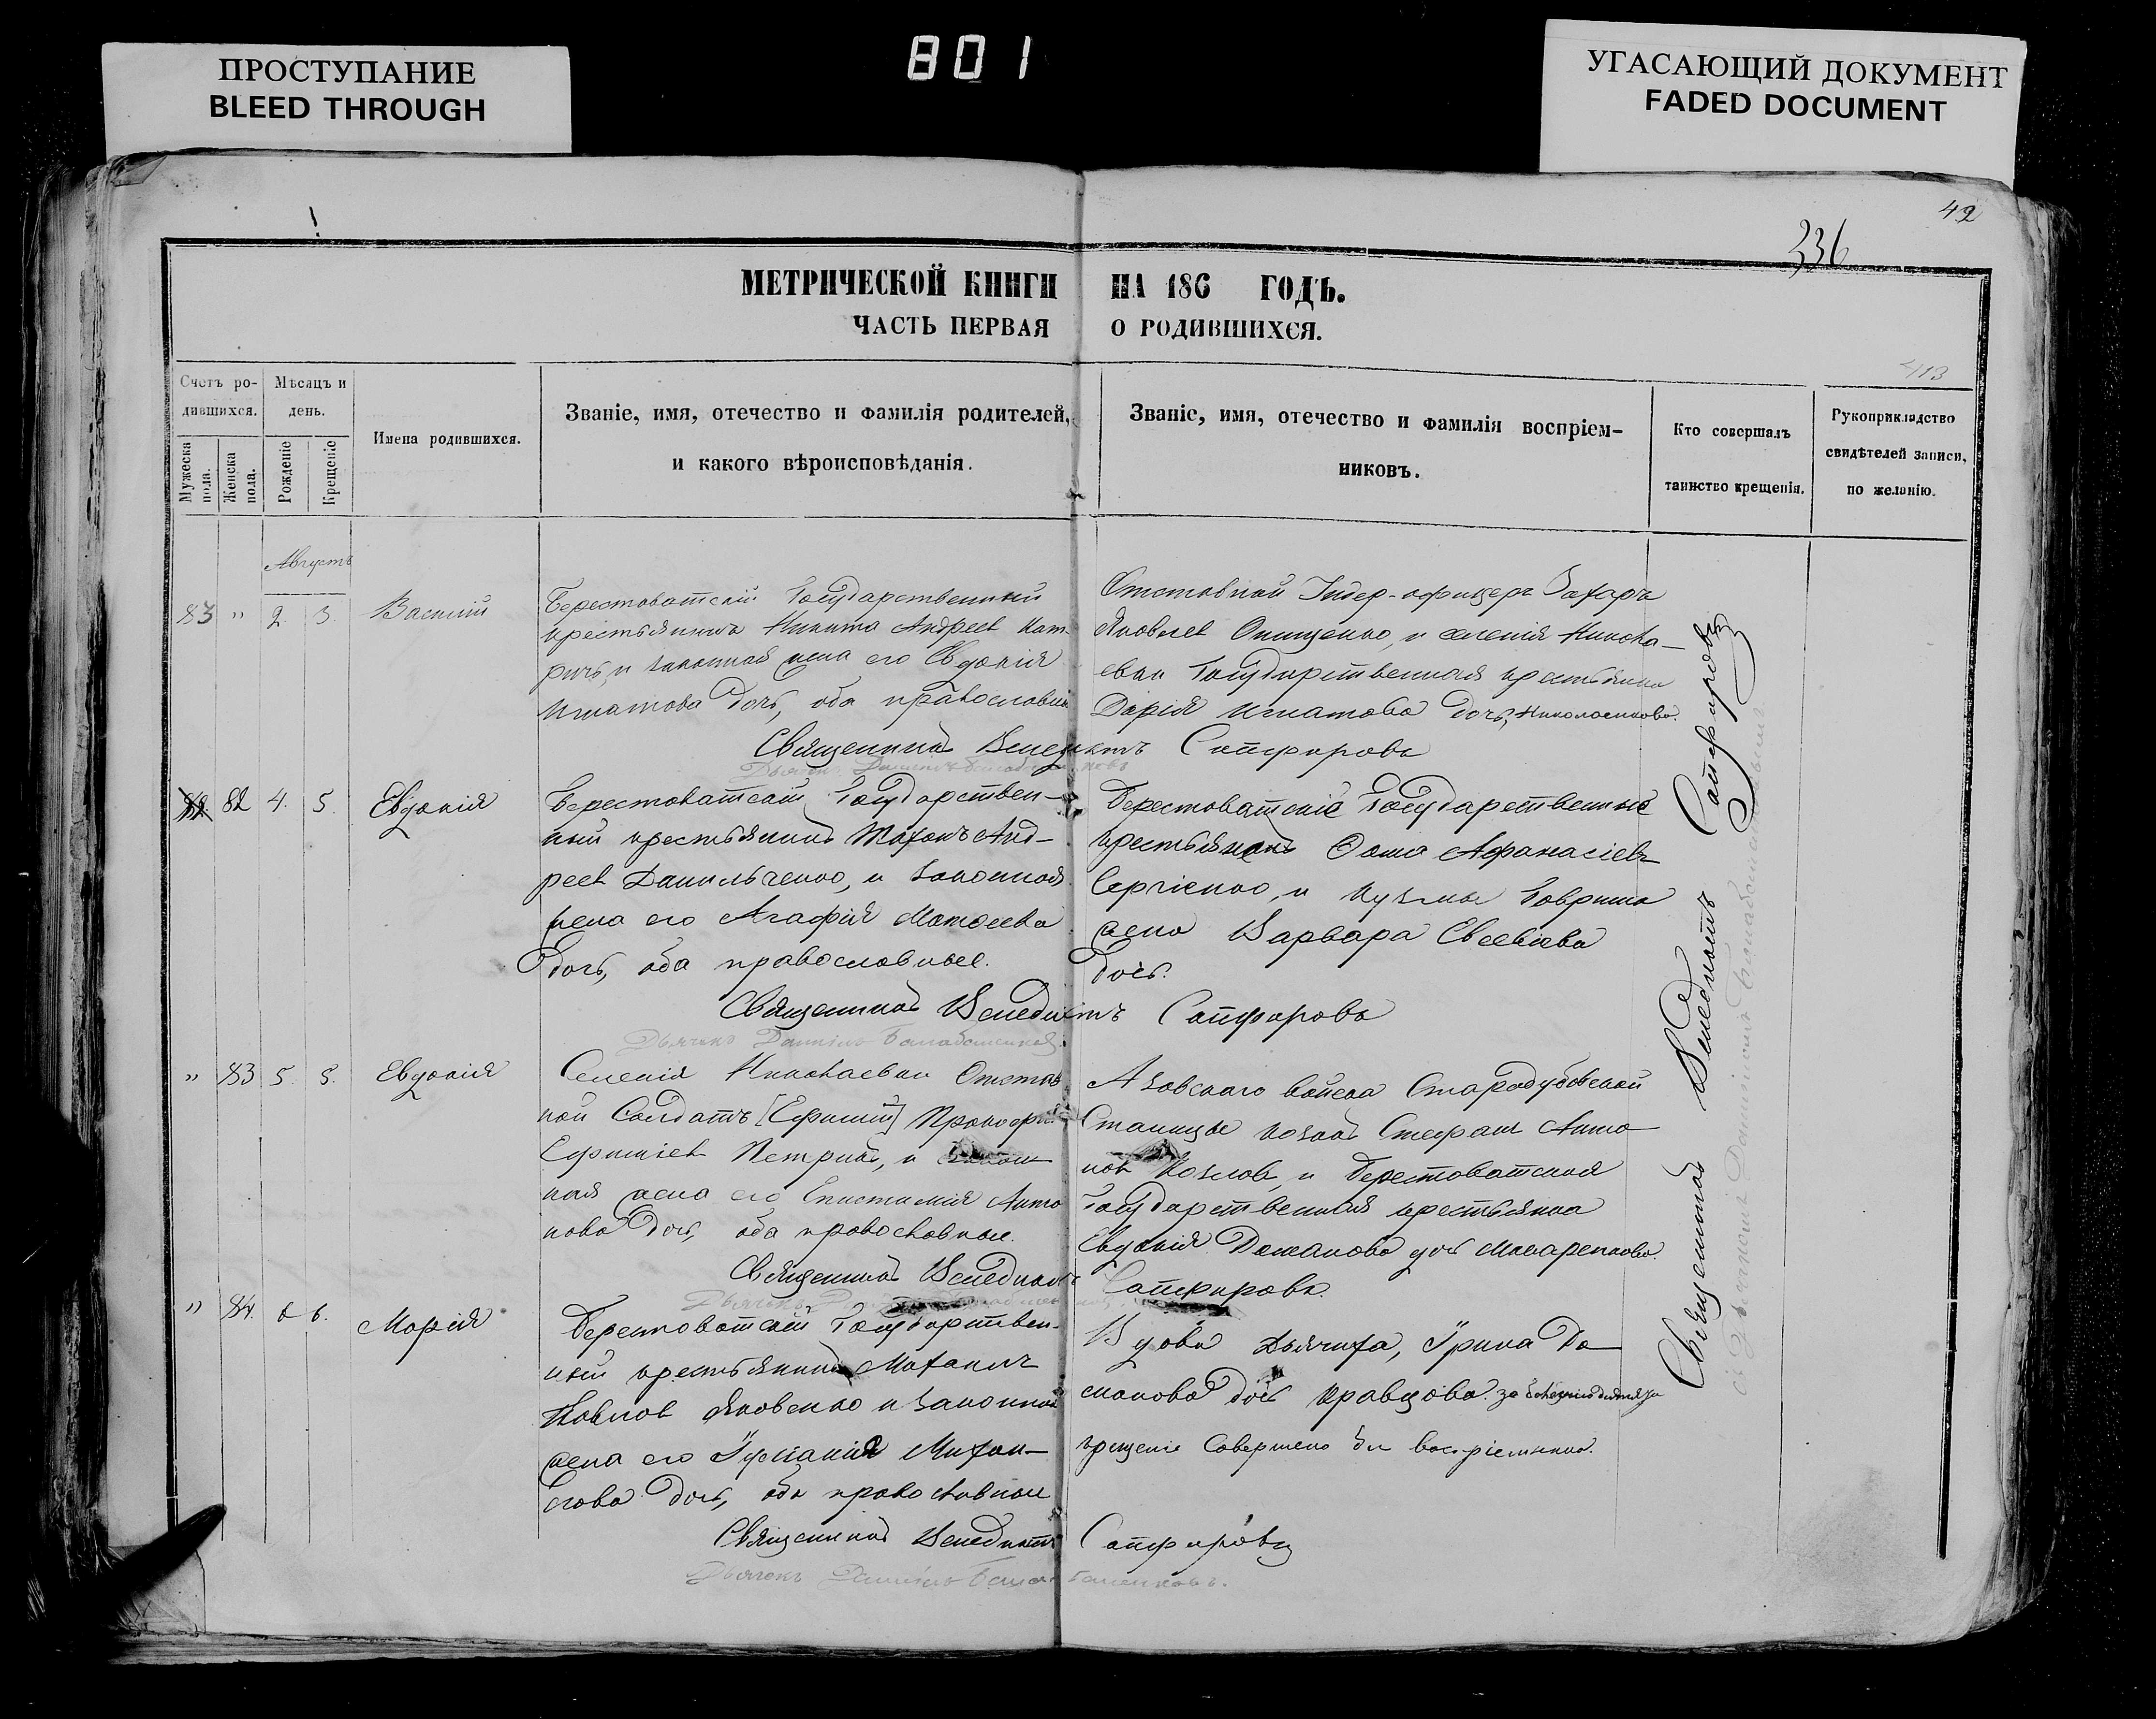 801
ПРОСТУПАНИЕ
BLEED THROUGH
УГАСАЮЩИЙ ДОКУМЕНТ
FADED DOCUMENT
42
336
МЕТРИЧЕСКОЙ КНИГИ НА 186 ГОДЪ.
ЧАСТЬ ПЕРВАЯ О РОДИВШИХСЯ.
Счетъ ро-
дившихся.
Мужеска
пола.
Женска
пола.
Мѣсяцъ и
день.
Рожденіе
Крещеніе
Имена родившихся.
Званіе, имя, отечество и фамилія родителей,
и какого вѣроисповѣданія.
Званіе, имя, отечество и фамилія воспріем-
никовъ.
Кто совершалъ
таинство крещенія.
Рукоприкладство
свидѣтелей записи,
по желанію.
Августъ
83 " 2. 3. Василій
Берестоватскій Государственный
крестьянинъ Никита Андреев
и законная жена его Евдокія
Игнатова дочь, оба православные
Отставной Захаръ
Яковлев Онищенко, и селенія Никола-
евки Государственная крестьянка
Дарія Игнатова дочь, Николаенкова.
Священникъ Венедиктъ Сапфировъ
82 4. 5. Евдокія
Берестоватскій Государствен-
ный крестьянинъ Тихонъ Анд-
реев Данильченко, и законная
жена его Агафія Матѳеева
дочь, оба православные.
Берестоватскіе Государственные
крестьянинъ Ѳома Афанасіевъ
Сергіенко, и Кузьмы Гавриша
жена Варвара Евсевіева
дочь.
Священникъ Венедиктъ Сапфировъ
Дьячокъ Даніилъ Балабаненковъ.
" 83 5. 5. Евдокія
Селенія Николаевки Отстав
ной Солдатъ [Ефимій] Прокофій
Ефиміев Петрикъ, и закон
ная жена его Епистимія Анто
нова дочь, оба православные.
Азовскаго войска Стародубовской
Станицы козакъ Стефан Анто
нов Козлов, и Берестоватская
Государственная крестьянка
Евдокія Дочь Макаренкова.
Священникъ Венедиктъ Сапфировъ.
" 84. 6 6. Марія
Берестоватскій Государствен-
ный крестьянинъ Михаилъ
Павлов Яковенко и законная
жена его Іуліанія Михаи-
лова дочь, оба православные
Вдова Дьячиха, Ірина Да
дочь Кравцова. за
крещеніе совершено воспріемника.
Священникъ Венедиктъ Сапфировъ
Дьячокъ Даніилъ Балабаненковъ.
Священникъ Венедиктъ Сапфировъ